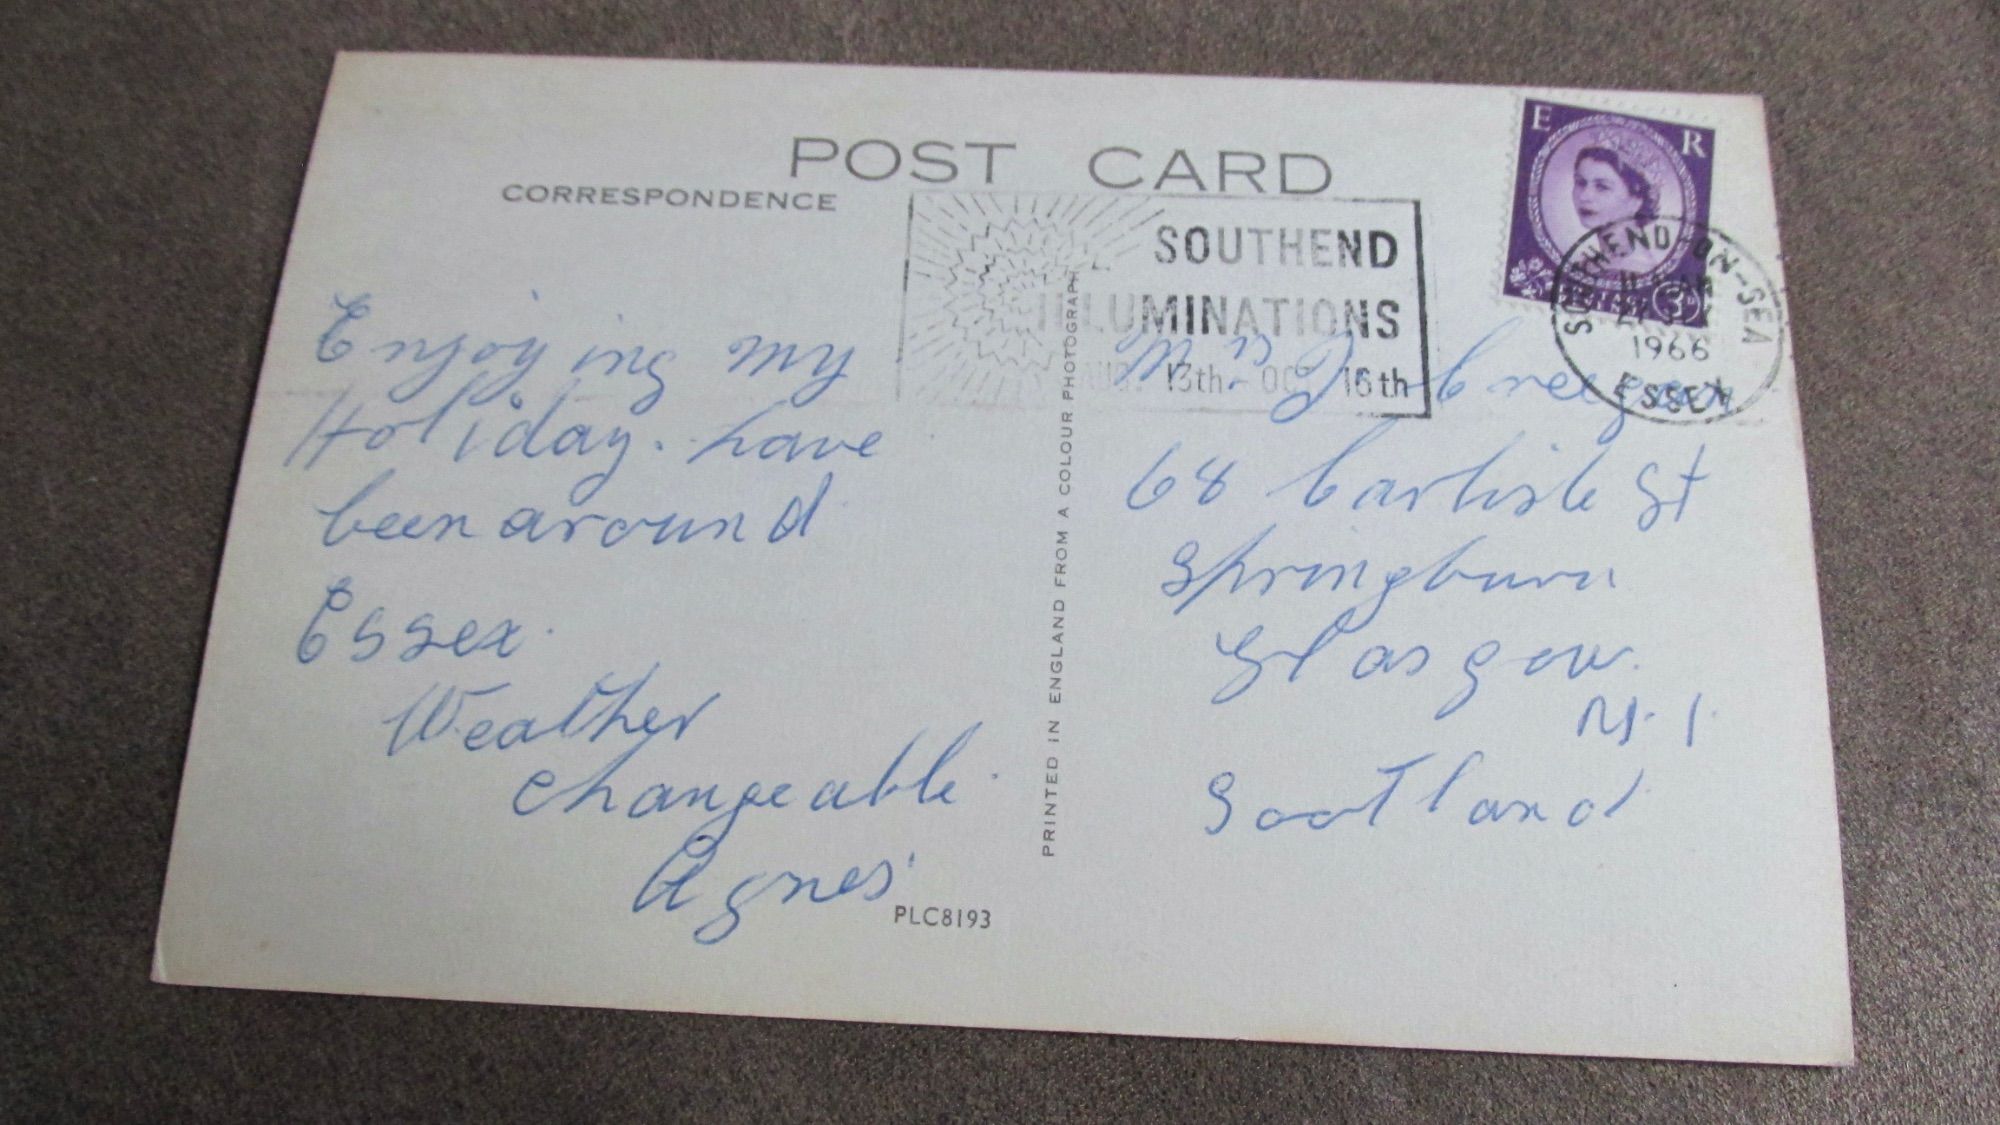 POST CARD
CORRESPONDENCE
SOUTHEND
ILLUMINATIONS
AUG. 13th - OCT 16th
E R
3D
SOUTHEND-ON-SEA
1966
ESSEX
Enjoying my
Holiday. have
been around
Essex.
Weather
changeable.
Agnes
PLC8193
PRINTED IN ENGLAND FROM A COLOUR PHOTOGRAPH
Mrs
68 Carlisle St
Springburn
Glasgow.
N.1.
Scotland